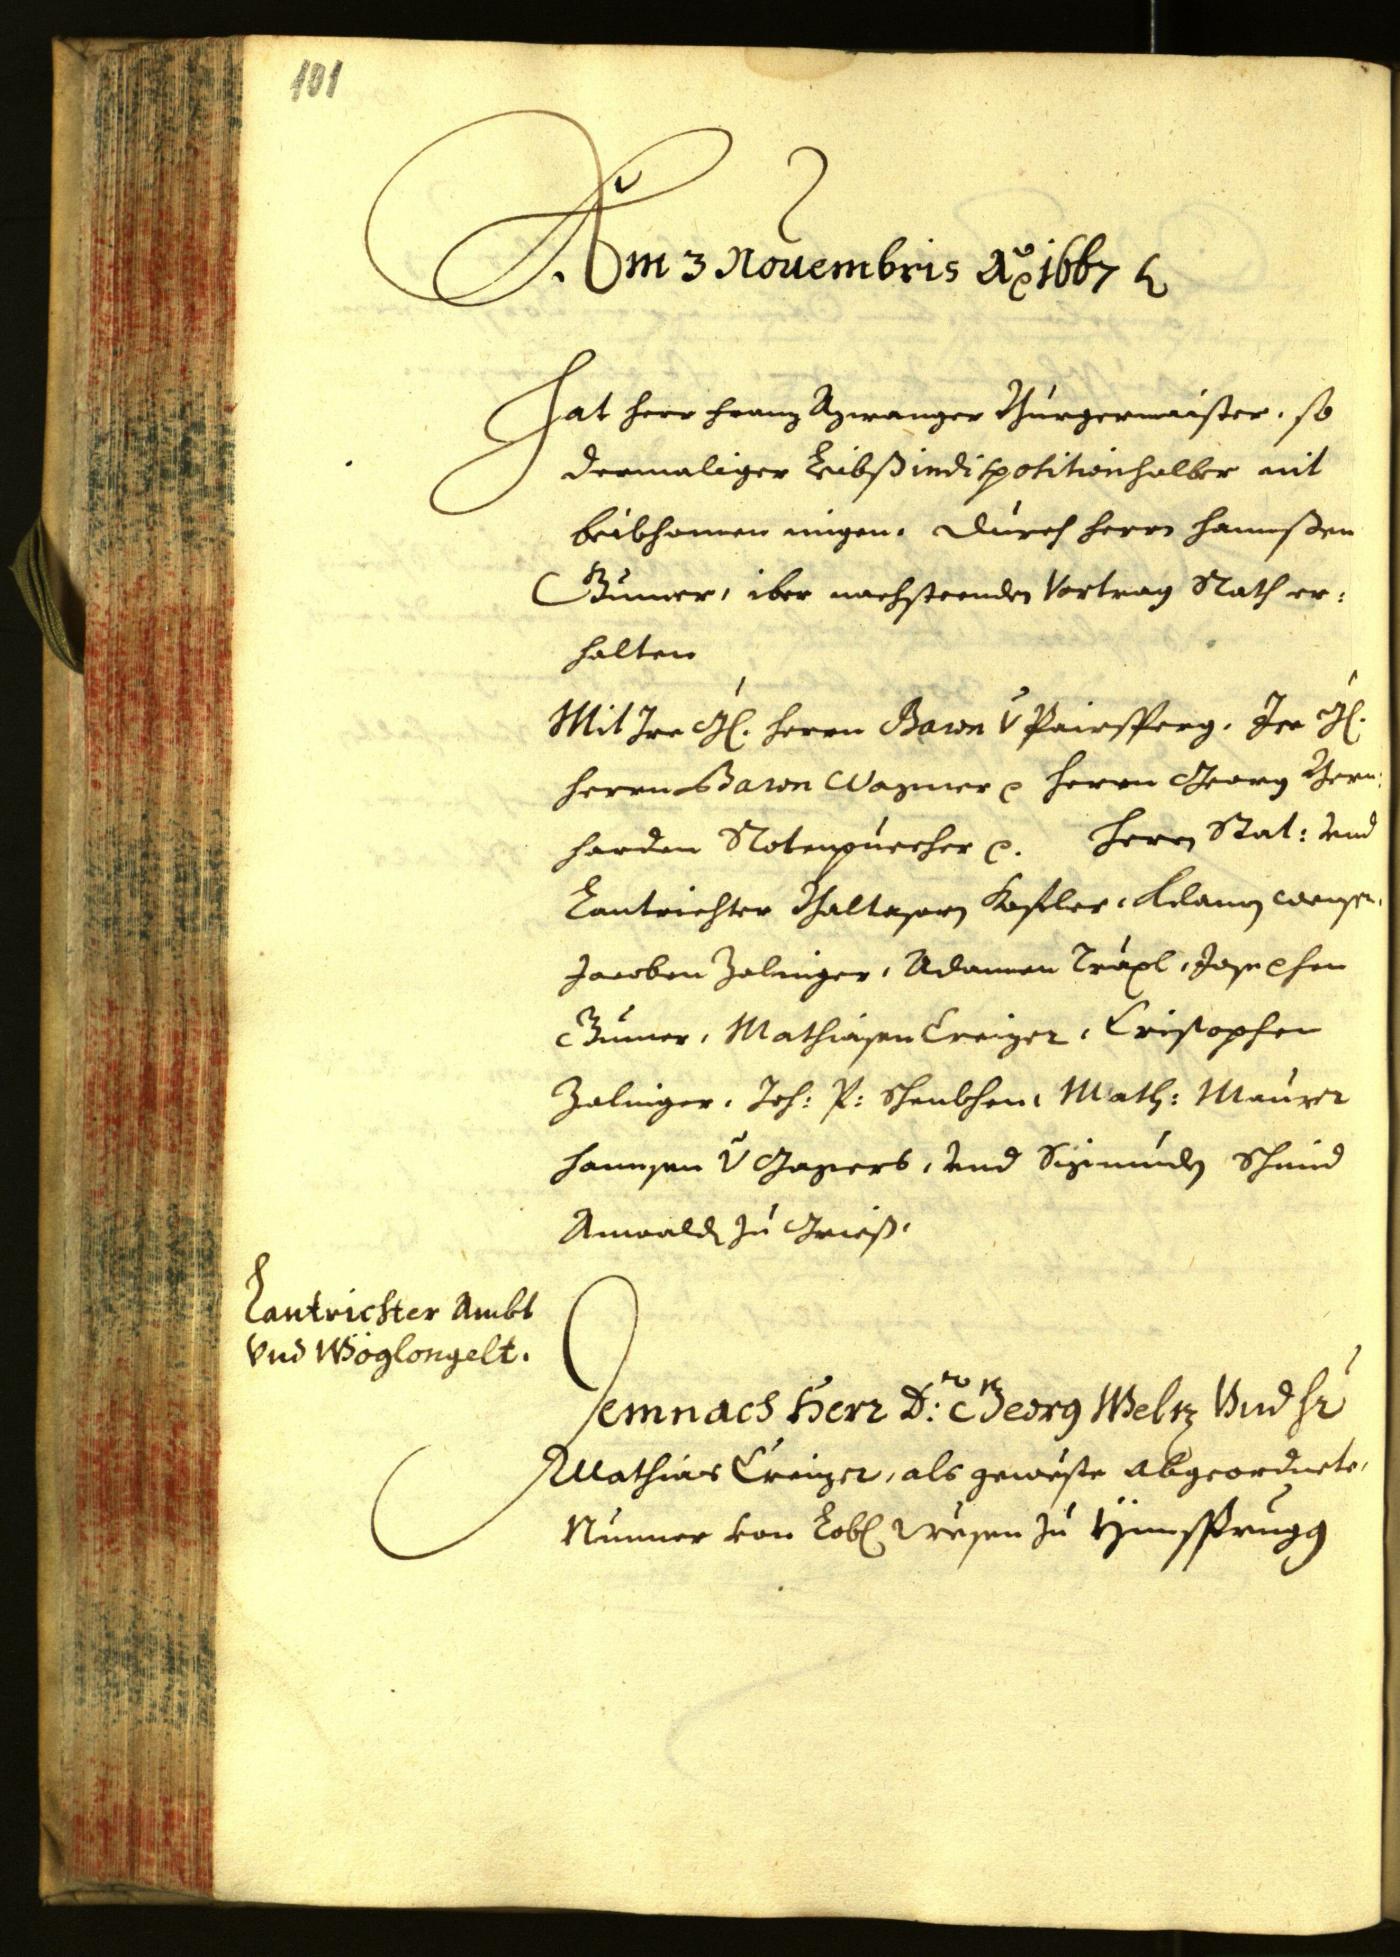 101
Am 3 Nouembris Aõ 1667
Hat herr Franz Azwanger Burgermaister, so
dermaliger Leibß indisposition halber nit
beikhomen mögen, durch herrn Hannßen
Gumer, iber nachsteenden Vortrag Rath er:
halten
Mit Ire Gl. herrn Baron V Pairsperg, Ire Gl.
herrn Baron Wagner herrn Georg Bern:
harden Rotenpuecher herrn Stat: vnd
Lantrichter Balthasarn Kofler,
Jacoben Zalinger, Adamen Träxl, Josephen
Gumer, Mathiasen Creizer, Cristophen
Zalinger, Joh: P: Schenkhen, Math: Maurer
Hannsen V Gagers, vnd Sigmunden Schmid
Anwald zu Grieß.
Lantrichter Ambt
Vnd Möglongelt.
Demnach Herr D: Georg Weltz Vnd hr
Mathias Creizer, als geweste abgeordnete,
Nunmer von Lobl wesen zu Ÿnnsprugg